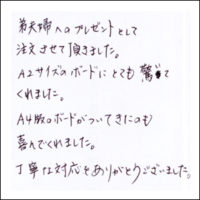 弟夫婦へのプレゼントとして
注文させて頂きました。
A2サイズのボードにとても驚いて
くれました。
A4版のボードがついてきたのも
喜んでくれました。
丁寧な対応をありがとうございました。